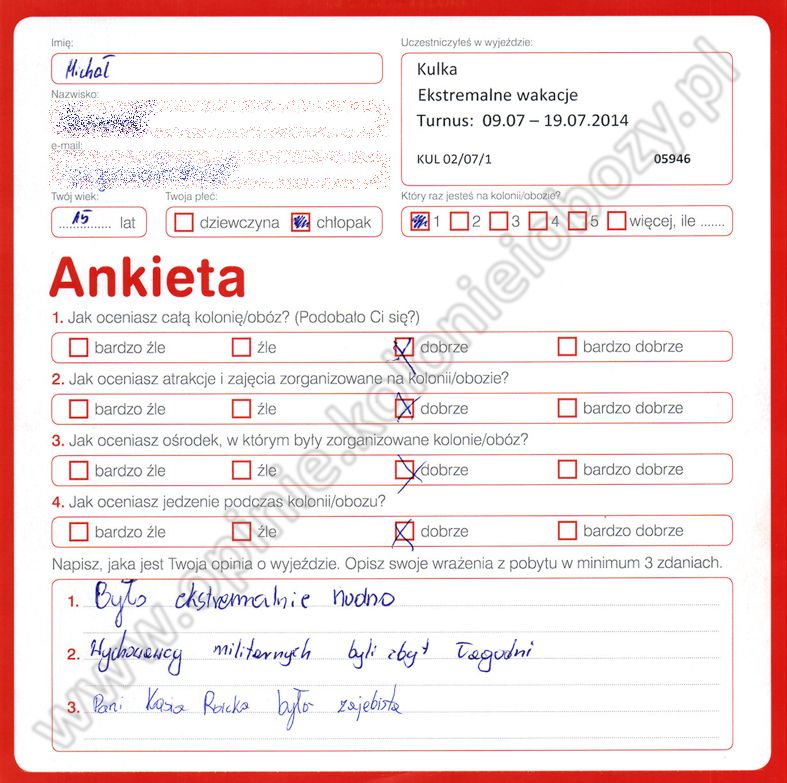 Imię:
Michał
Nazwisko:
e-mail:
Twój wiek:
15 lat
Twoja płeć:
dziewczyna chłopak
Uczestniczyłeś w wyjeździe:
Kulka
Ekstremalne wakacje
Turnus: 09.07 – 19.07.2014
KUL 02/07/1 05946
Który raz jesteś na kolonii/obozie?
1 2 3 4 5 więcej, ile .......
Ankieta
1. Jak oceniasz całą kolonię/obóz? (Podobało Ci się?)
bardzo źle źle dobrze bardzo dobrze
2. Jak oceniasz atrakcje i zajęcia zorganizowane na kolonii/obozie?
bardzo źle źle dobrze bardzo dobrze
3. Jak oceniasz ośrodek, w którym były zorganizowane kolonie/obóz?
bardzo źle źle dobrze bardzo dobrze
4. Jak oceniasz jedzenie podczas kolonii/obozu?
bardzo źle źle dobrze bardzo dobrze
Napisz, jaka jest Twoja opinia o wyjeździe. Opisz swoje wrażenia z pobytu w minimum 3 zdaniach.
1. Było ekstremalnie nudno
2. Wychowawcy militarnych byli zbyt łagodni
3. Pani Kasia była zajebista
www.opinie.kolonieiobozy.pl